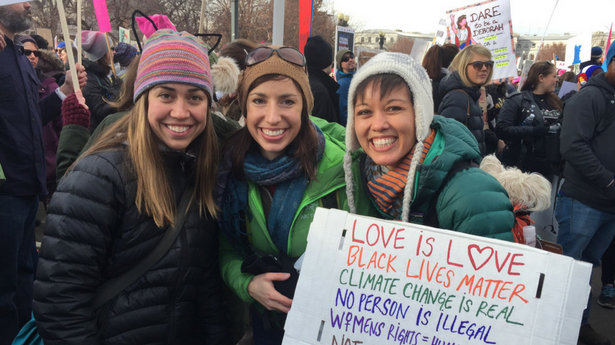 DARE
to be a
DEBORAH
LOVE IS LOVE
BLACK LIVES MATTER
CLIMATE CHANGE IS REAL
NO PERSON IS ILLEGAL
WOMENS RIGHTS =